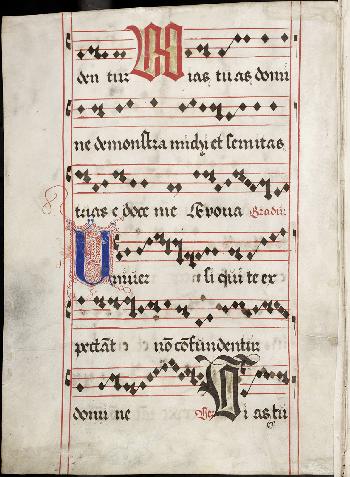 den tur Vias tuas domi
ne demonstra michi et semitas
tuas e doce me Aevoua Gradu
Univer si qui te ex
pectāt nō cōfundentur
domi ne Ve Vias tu